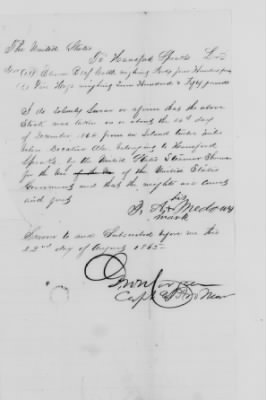 The United States
To Hansford Sprouts Dr
Eleven Beef Cattle weighing Forty four Hundred pds
Five Hogs weighing Seven Hundred & Fifty pounds
I do solemnly swear or affirm that the above
Stock was taken on or about the 16th day
of December 1864 from an Island twelve miles
below Decatur Ala belonging to Hansford
by the United States Steamer
for the Use of the United States
Government and that the weights are correct
and just
his
X Medows
mark
Sworn to and Subscribed before me this
22nd day of August 1865
Capt &